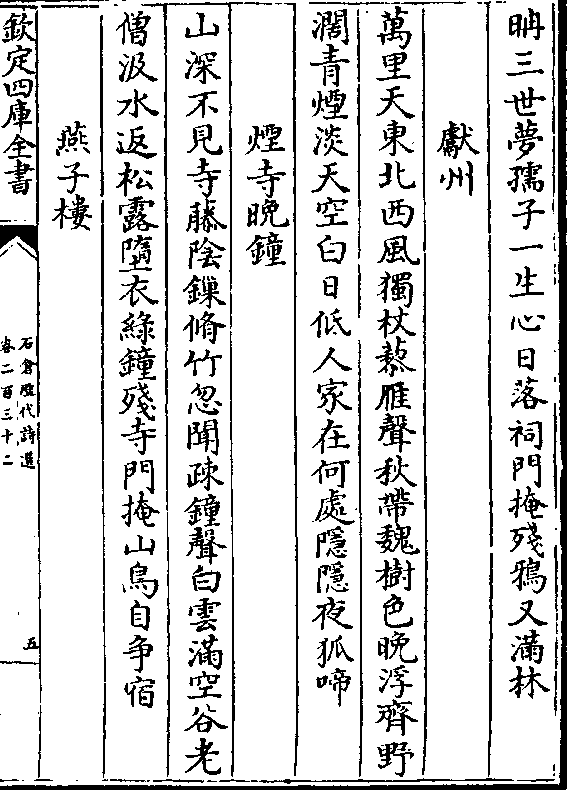 畊三世夢孺子一生心日落祠門掩殘鴉又滿林
獻州
萬里天東北西風獨杖藜雁聲秋帶魏樹色晚浮齊野
濶青煙淡天空白日低人家在何處隱隱夜狐啼
煙寺晚鐘
山深不見寺藤陰鏁脩竹忽聞疎鐘聲白雲滿空谷老
僧汲水返松露墮衣綠鐘殘寺門掩山鳥自争宿
燕子樓
欽定四庫全書
石倉歴代詩選
卷二百三十二
五